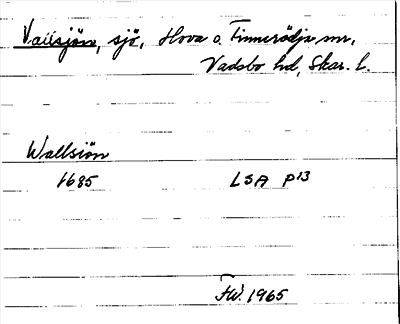 Vallsjön, sjö, Hova o. Finnerödja snr,
Vadsbo hd, Skar. l.
Wallsiön
1685 LSA P13
F.W. 1965